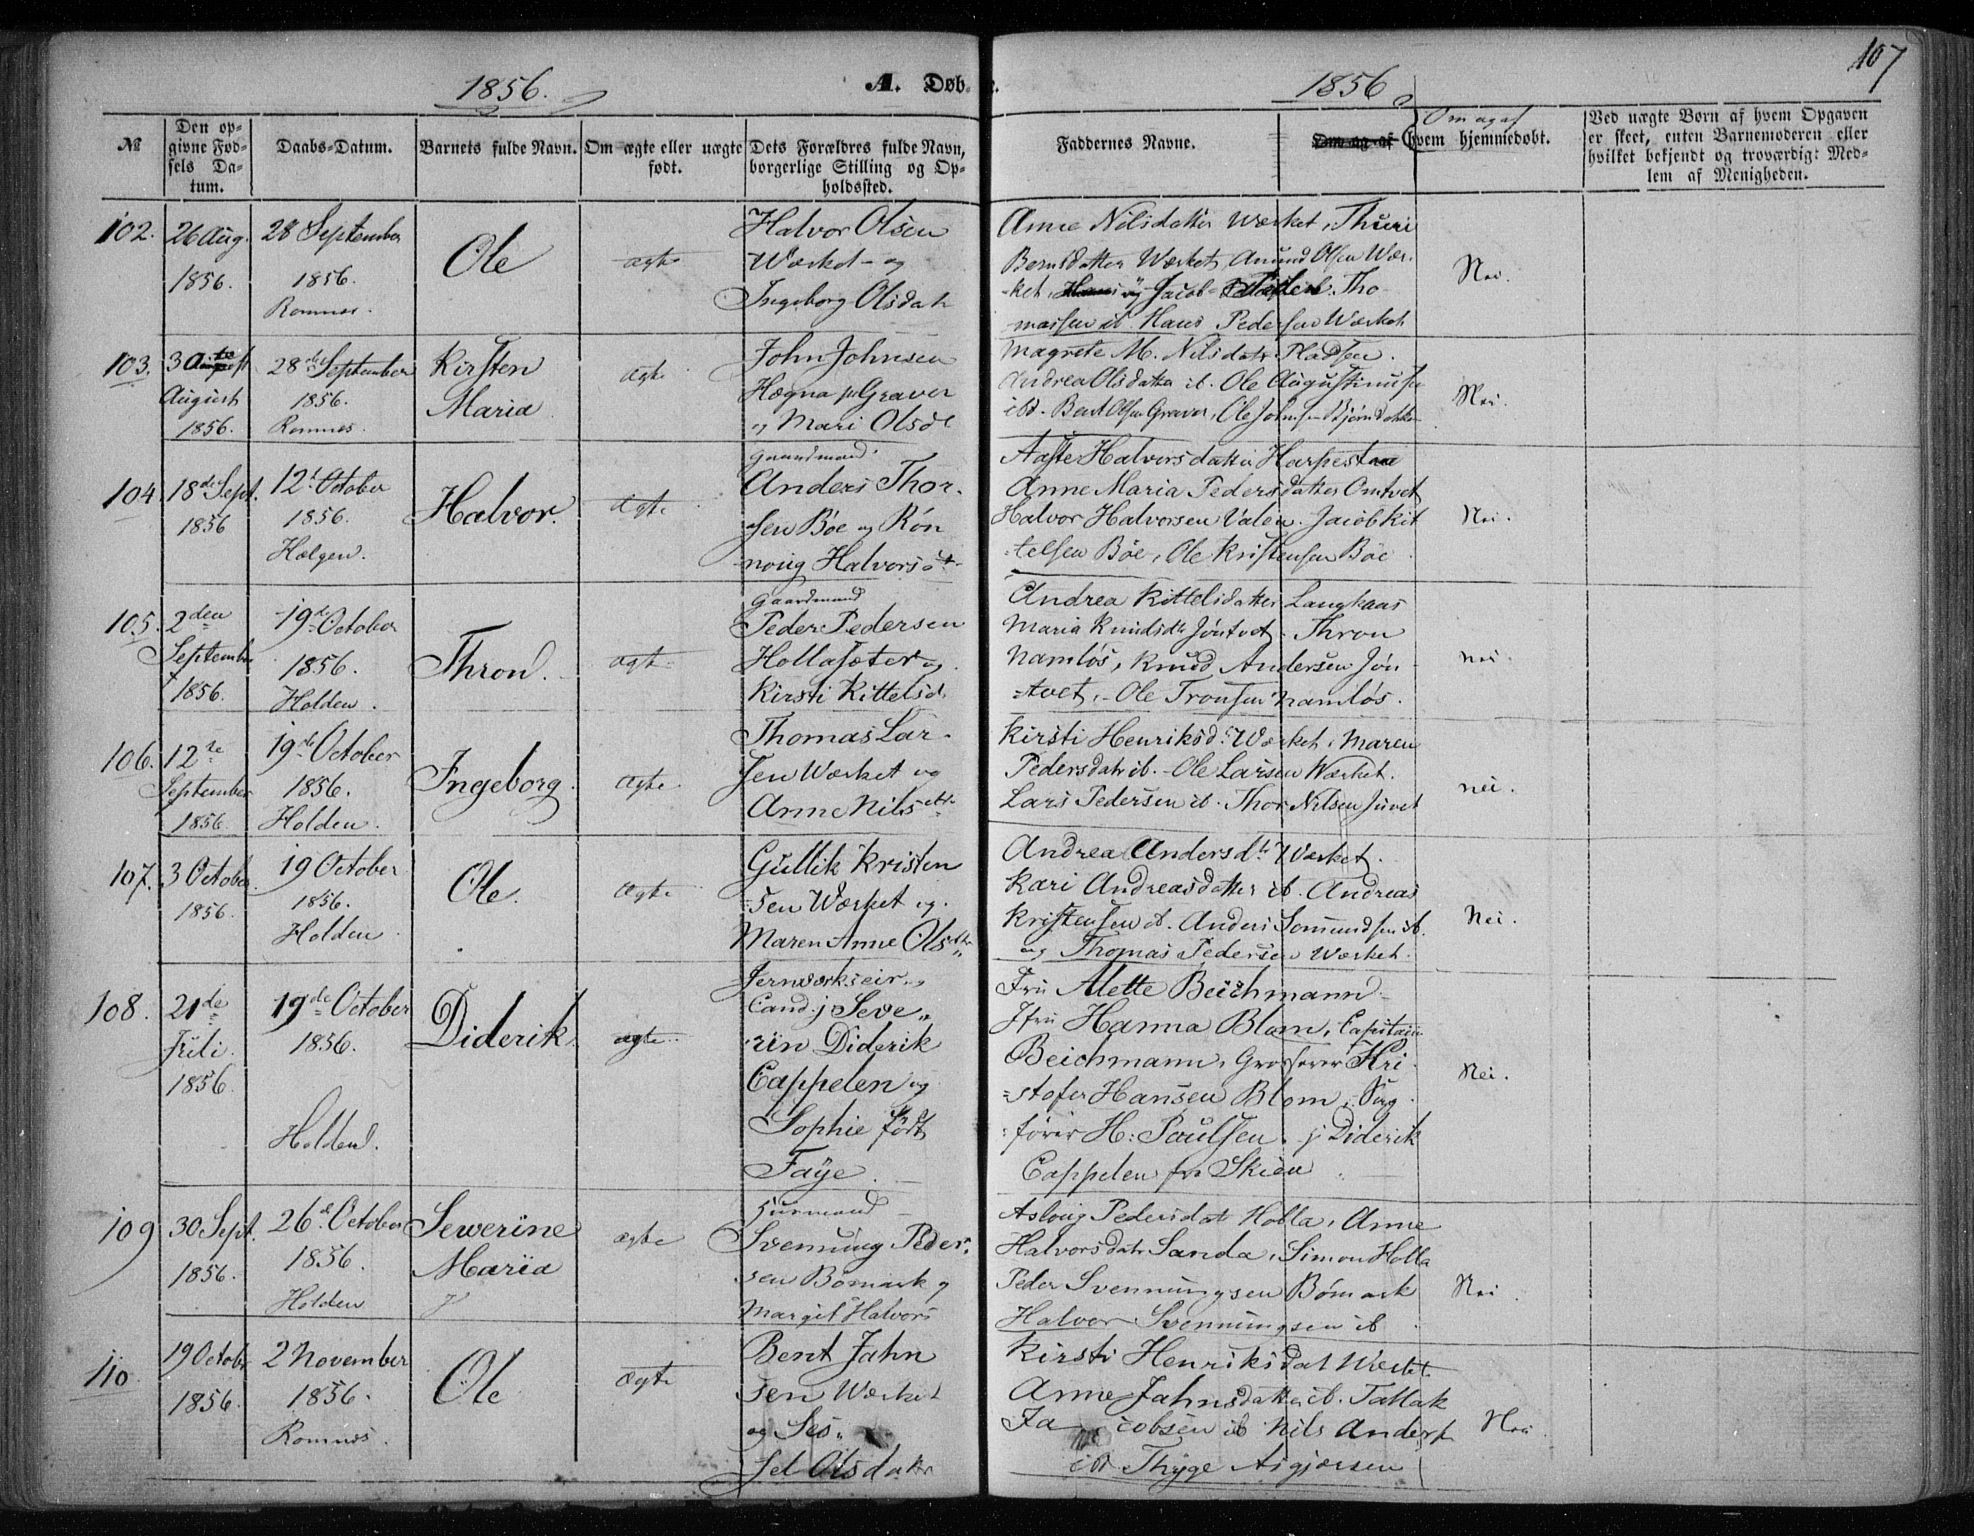 107
1856. A. Døb- e. 1856
№
Den op-
givne Fød-
sels Da-
tum.
Daabs-Datum.
Barnets fulde Navn.
Om ægte eller uægte
født.
Dets Forældres fulde Navn,
borgerlige Stilling og Op-
holdssted.
Faddernes Navne.
Om og af
Om og af hvem hjemmedøbt.
Ved uægte Børn af hvem Opgaven
er skeet, enten Barnemoderen eller
hvilket bekjendt og troværdigt Med-
lem af Menigheden.
102.
26 Aug.
1856.
28 September
1856.
Romnes.
Ole
ægte
Halvor Olsen
Værket og
Ingeborg Olsdatr
Anne Nilsdatter Værket, Thuri
Berntsdatter Værket, Anund Olsen Vær-
ket, Jacob Tho-
massen ib Hans Pedersen Værket
Nei.
103.
3
August
1856.
28de September
1856.
Romnes.
Kirsten
Maria
ægte
John Johnsen
Hægna p Graver
og Mari Olsd
Magrete M. Nilsdatr Pladsen.
Andrea Olsdatter ib. Ole Augustinusen
ibd. Bent Olsen Graver, Ole Johnsen
Nei.
104
18de Sept.
1856
12t October
1856.
Helgen.
Halvor.
ægte
Gaardmand
Anders Thor-
sen Bøe og Røn-
noug Halvorsdt
Aaste Halvorsdatter Harpestaa
Anne Maria Pedersdatter Omtvet
Halvor Halvorsen Valen. Jacob Kit
telsen Bøe, Ole Kristensen Bøe
Nei.
105.
2den
September
1856.
19de October
1856.
Holden.
Thron.
ægte
Gaardmand
Peder Pedersen
Hollasæter og
Kirsti Kittelsd.
Andrea Kittelsdatter Langkaas
Maria Knudsdt Jøntvet Thron
Namløs, Knud Andersen Jøn-
tvet, Ole Tronsen Namløs.
nei.
106.
12te
September
1856.
19de October
1856.
Holden.
Ingeborg.
ægte.
Thomas Lar-
sen Værket og
Anne Nilsdtr.
Kirsti Henriksdt Værket, Maren
Pedersdatr ib. Ole Larsen Værket.
Lars Pedersen ib. Thor Nilsen Juvet
nei.
107.
3 October.
1856.
19 October
1856.
Holden
Ole.
ægte
Gullik Kristen
sen Værket og
Maren Anne Olsdtr
Andrea Andersdtr Værket.
Kari Andreasdatter ib. Andreas
Kristensen ib. Anders Somundsen ib.
og Thomas Pedersen Værket.
Nei.
108.
21de
Juli.
1856.
19de October
1856.
Holden.
Diderik
ægte
Jernværkseier
Cand. j Seve-
rin Diderik
Cappelen og
Sophie født
Faye.
Fru Alette Beichmann
Jfru Hanna Blom, Capitain
Beichmann, Grosserer Kri-
stofer Hansen Blom, Sag
fører H: Poulsen. j Diderik
Cappelen fra Skien
Nei.
109
30 Sept.
1856.
26d October
1856.
Holden
Sewerine
Maria
ægte
Huusmand
Svennung Peder-
sen Bømark og
Margit Halvors
Aslaug Pedersdat Holla, Anne
Halvorsdatr Sanda, Simon Holla
Peder Svennungsen Bømark
Halvor Svennungsen ib
Nei.
110
19 Octobr.
1856.
2 November
1856.
Romnes.
Ole
Ægte
Bent Jahn
sen Værket
og Ses-
sel Olsdatr
Kirsti Henriksdat Værket
Anne Jahnsdatter ib. Tallak
Ja cobsen ib Nils Anders
ib Thyge Asgjersen
Nei